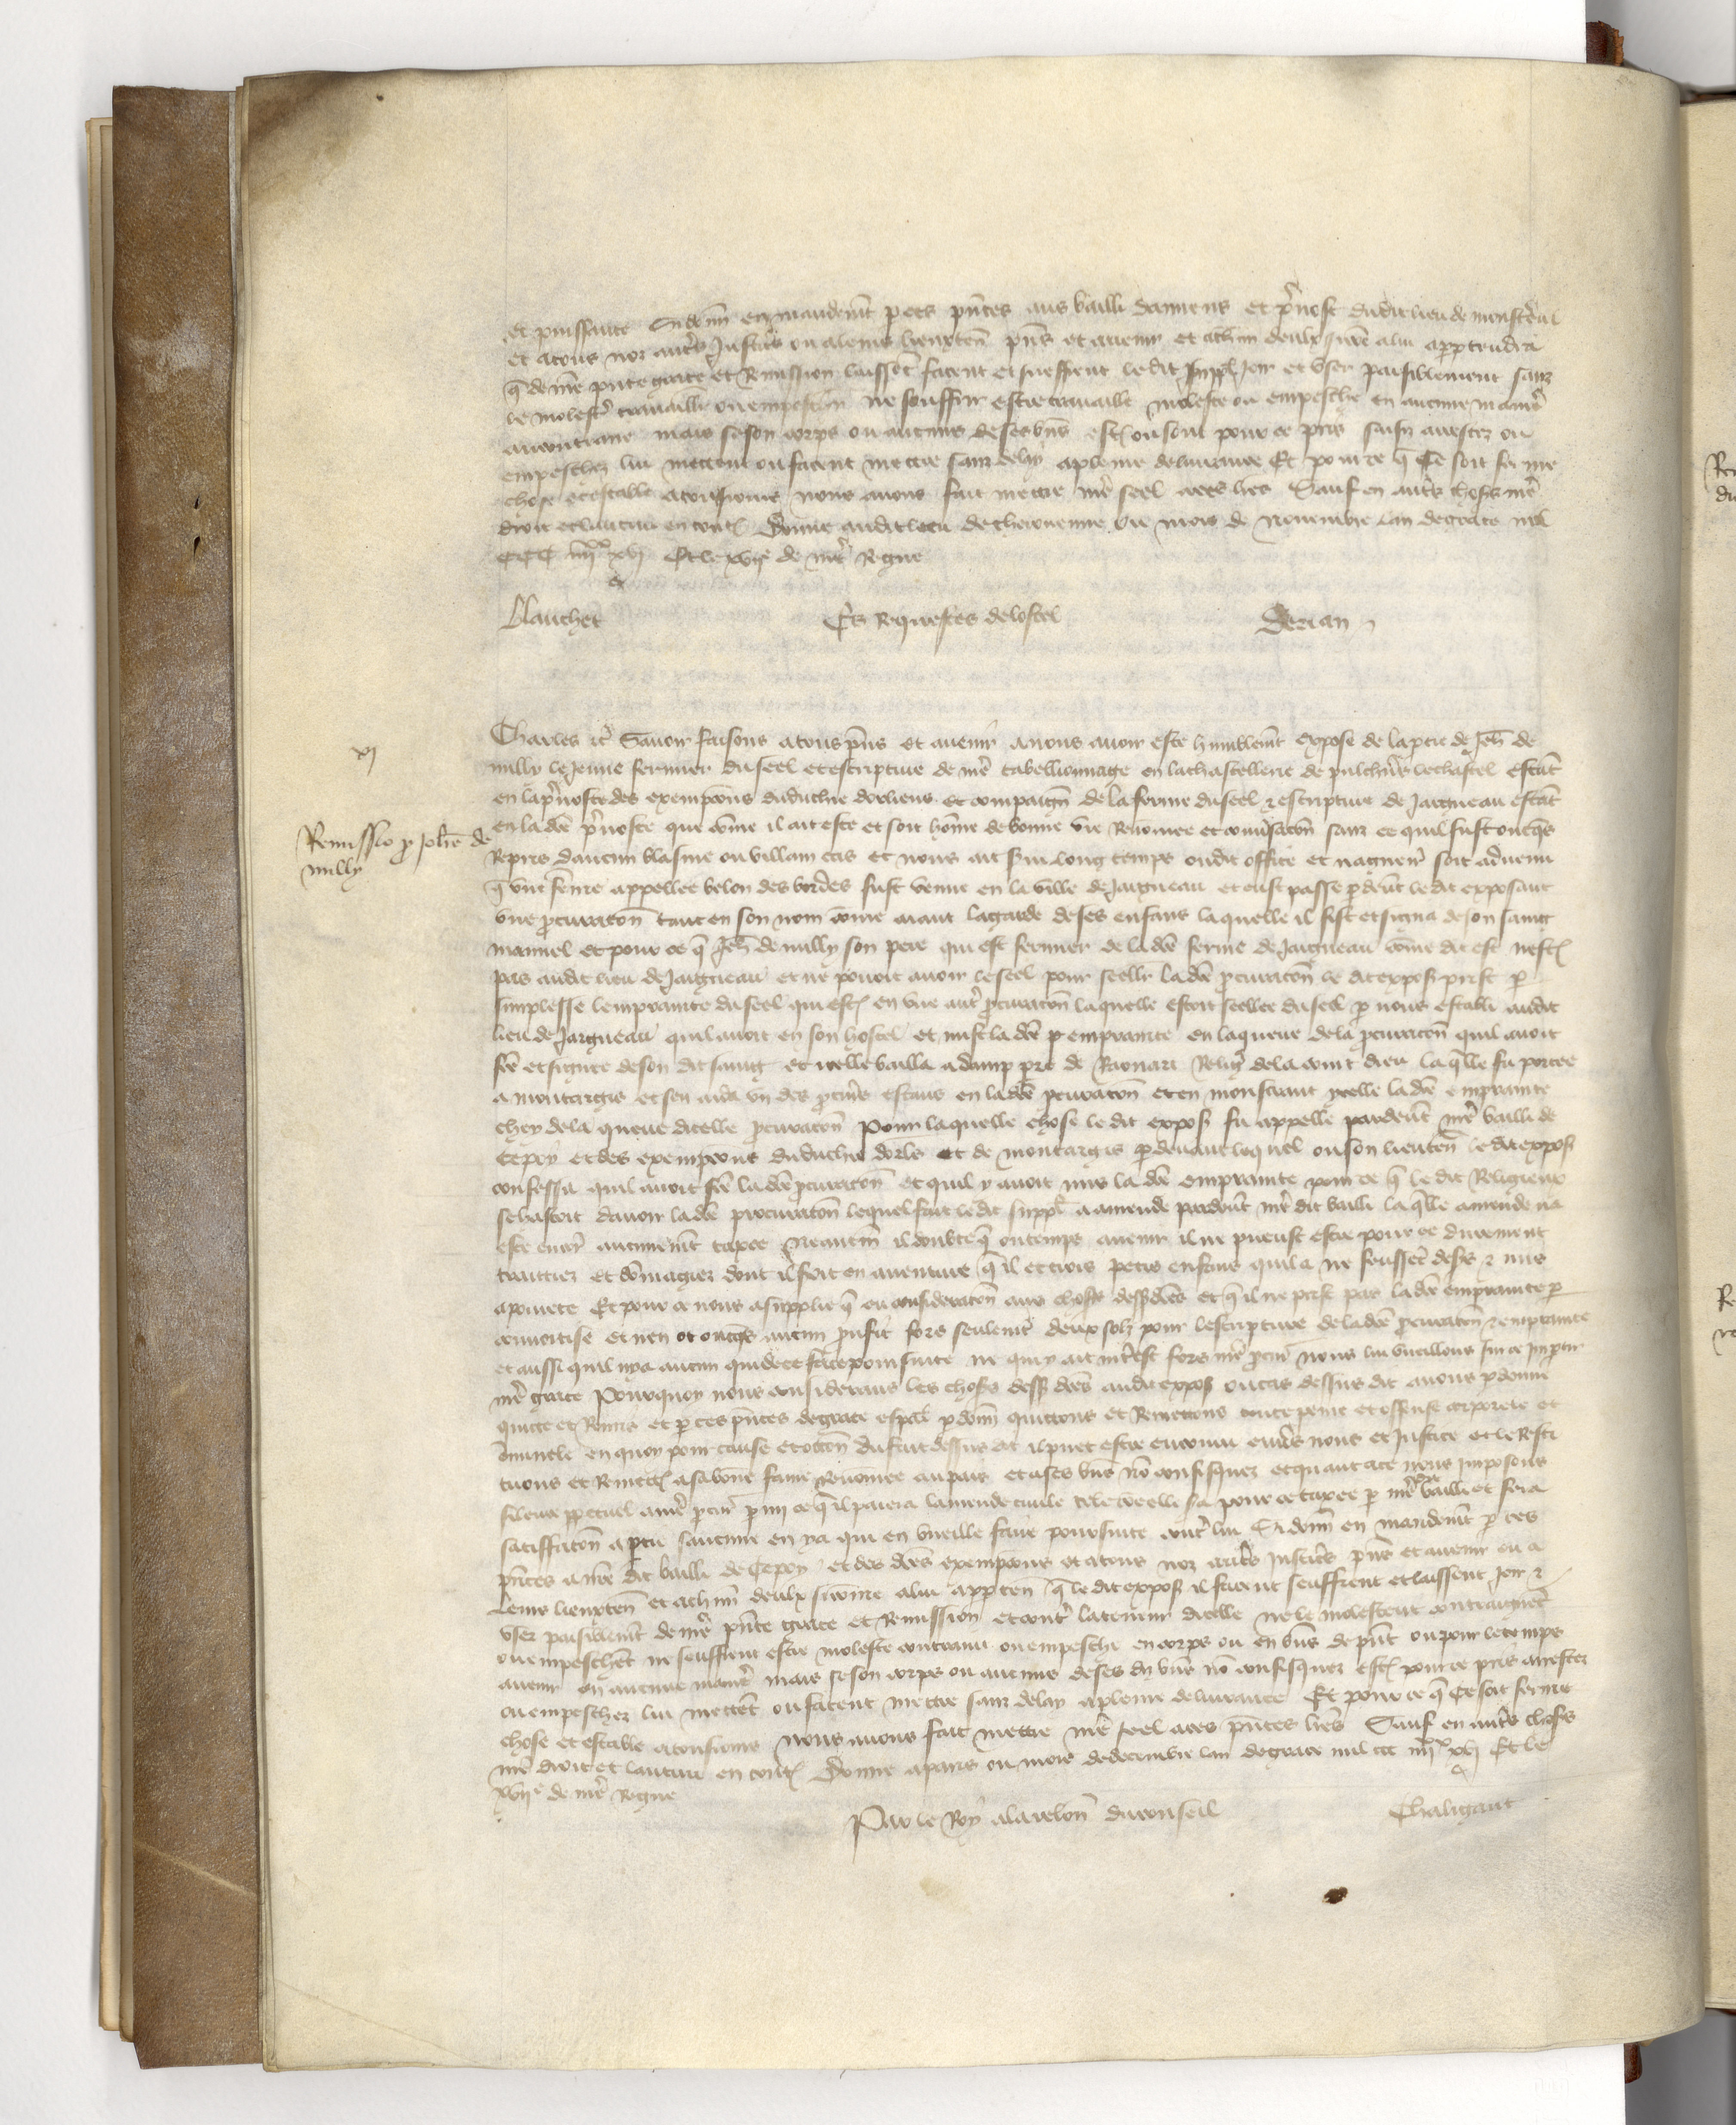 et puissance Si donn en mandemt p ces pntes aus bailli damiens et pvost dudit lieu de monsteul
et a tous noz autres Justic ou a leurs lieuxten pns et avenir et a chun deulx si come a lui appartendra
q de nre pnte grace et Remission laissent facent et sueffrent ledit suppl Joir et user paisiblement sanz
le molester travaillier ou empeschier ne souffrir estre travaille moleste ou empesche en aucune manie
au contraire mais se son corps ou aucuns de ses biens est ou sont pour ce pris saisiz arrestez ou
empeschez lui mettent ou facent mettre sanz delay a pleine delivrance Et pour ce q Ce soit ferme
chose et estable a tousjours nous avons fait mettre nre seel a ces lres Sauf en autres choses nre
droit et lautrui en tout Donne audit lieu de therouenne ou mois de novembre lan de grace mil
CCC iiii xx xvi Et le xvii e de nre Regne
Blanchet Es Requestes de lostel Derian
xi
Charles et Savoir faisons a tous pns et avenir a nous avoir este humblemt expose de la ptie de Jeh de
milly le Jeune fermier du seel et escripture de nre tabellionnage en la chastellerie de le chastel estant
en la pvoste des exempcons du duchie dorliens et compaign de la ferme du seel & escripture de Jargueau estant
en la dce pvoste que come il ait este et soit home de bonne vie Renomee et conversacon sanz ce quil fust oncqs
Repris daucun blasme ou villain cas et nous ait servi long temps oudit office et nagueres soit advenu
Remissio p Johe de
milly
q une feme appellee belon des bordes fust venue en la ville de Jargueau et eust passe p devt le dit exposant
une pcuracon tant en son nom come aiant la garde de ses enfans laquelle il fist et signa de son saing
manuel et pour ce q Jeh de milly son pere qui est fermier de la dce ferme de Jargueau come dit est nest
pas audit lieu de Jargueau et ne povoit avoir le seel pour seeller la dce pcuracon le dit expos prist p
simplesse lempraınte du seel qui est en une aut pcuracon laquelle estoit seellee du seel p nous establi audit
lieu de Jargueau quil avoit en son hostel et mist la dce empraınte en la queue de la pcuracon quil avoit
fte et signee de son dit saing et icelle bailla a damp pre de Relig de la court dieu laqlle fu portee
a montargis et sen aida un des pcurs estans en la dce pcuracon et en monstrant ycelle la dce empraınte
chey de la queue dicelle pcuracon Pour laquelle chose le dit expos fu appelle pardevt nre bailli de
Cepoy et des exempcons du duchie dorls et de montargis p devant lequel ou son lieuten le dit expos
confessa quil avoit fte la dce pcuracon et quil y avoit mis la dce empraınte pour ce q le dit Religieux
se hastoit davoir la dce procuracon lequel fait le dit suppl a amende pardevt nre dit bailli laqlle amende na
este encor aucunemt taxee Neantm il doubte q ou temps avenir il ne peust estre pour ce durement
traittiez et domagiez dont il seroit en aventure q il et trois petis enfans quil a ne feussent desers & mis
a povrete Et pour ce nous a supplie q en consideracon aus choses dessdces et q il ne prist pas la dce empraınte p
convoitise et nen ot oncqs aucun proufit fors seulemt deux solz pour lescripture de la dce pcuracon & empraınte
et aussi quil nya aucun qui de ce face poursuite ne qui y ait intest fors nre pcur nous lui vueillons sur ce impartir
nre grace Pourquoy nous considerans les choses dess dces audit expos ou cas dessus dit avons pdonne
quicte et Remis et p ces pntes de grace espal pdonn quictons et Remettons toute peine et offense corporele et
criminele en quoy pour cause et occon du fait dessus dit il puet estre encouru envers nous et Justice et le Resti
tuons et Remett a sa bone fame Renomee au pais et a ses biens no confisquez et quant a ce nous imposons
silence ppetuel a nre pcur p mi ce q il paiera lamende civile tele come elle sa pour ce taxee p nre bailli et fera
satiffacon a ptie saucune en ya qui en vueille faire poursuite contr lui Si donn en mandemt p ces
pntes a nre dit bailli de Cepoy et des dces exempcons et a tous noz autres Justic pns et avenir ou a
Leurs lieuxten et a chun deulx si come a lui apparten q le dit expos il facent seuffrent et laissent Joir &
user paisiblemt de nre pnte grace et Remission et contr la teneur dicelle ne le molestent contraignet
ou empeschent ne seuffrent estre moleste contraint ou empeschie en corps ou en biens de pnt ou pour le temps
avenir en aucune manie mais se son corps ou aucuns de ses diz biens no confisquez est pour ce pris arrestez
ou empeschez lui mettent ou facent mettre sanz delay a pleine delivrance Et pour ce q Ce soit ferme
chose et estable a tousjours nous avons fait mettre nre seel a ces pntes lres Sauf en autres choses
nre droit et lautrui en tout Donne a paris ou mois de decembre lan de grace mil ccc iiii xx xvi Et le
xvii e de nre Regne
Par le Roy a la relon du conseil Chaligaut